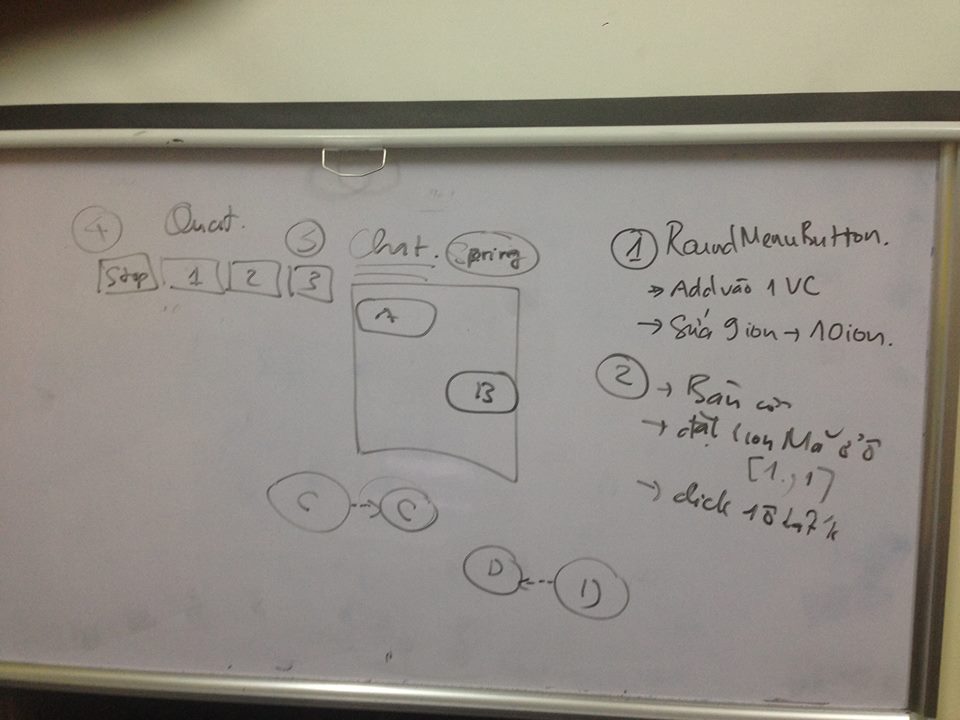 4 Quạt.
Stop 1 2 3
3 Chat. Spring
A
B
C C
D D
1 RoundMenuButton.
→ Add vào 1 VC
→ Sửa 9 ion → 10 ion.
2 → Bàn cờ
→ đặt 1 con Mã ở ô
[1, 1]
→ click 1 ô